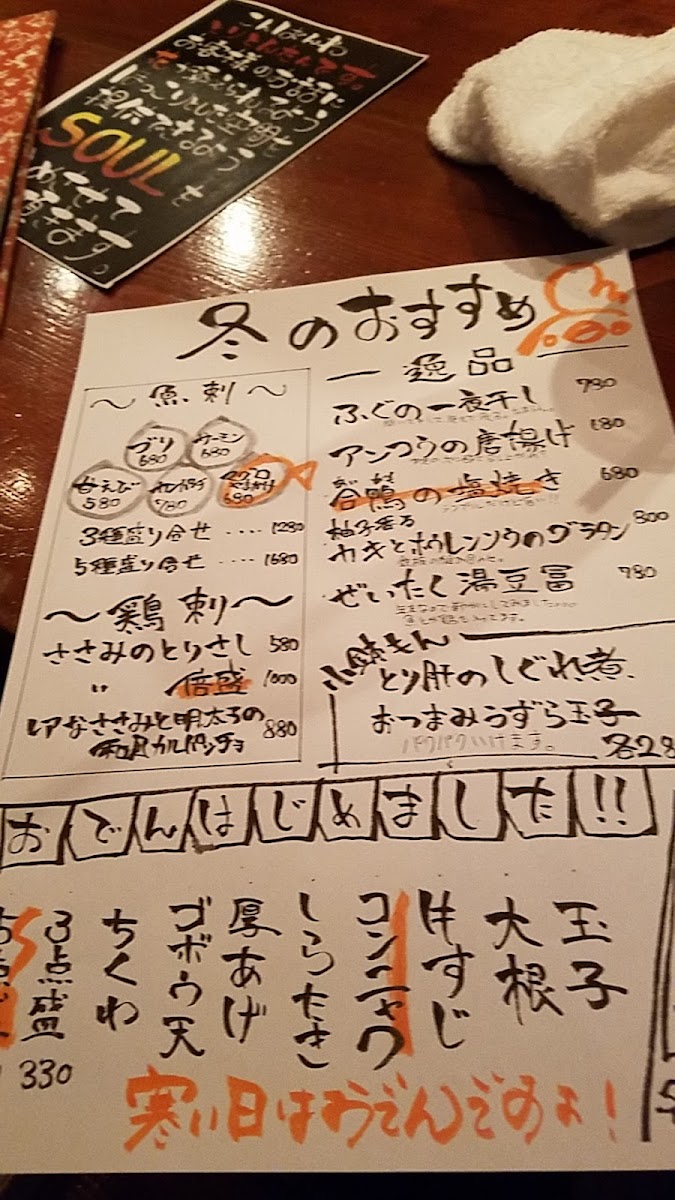 こんばんわ
とりとんたんです。
お客様のお話に
花が添えられるよう
ほっこりとした空間を
提供できるよう
SOULを
めざせて
頂きます。
冬のおすすめ
～魚刺～
ブリ 680
サーモン 680
甘えび 580
780
マグロ 680
3種盛り合せ ‥‥ 1280
5種盛り合せ ‥‥ 1680
～鶏刺～
ささみのとりさし 580
〃 倍盛 1000
レアなささみと明太子の
和風カルパッチョ 880
一逸品
ふぐの一夜干し 780
アンコウの唐揚げ 680
合鴨の塩焼き 680
柚子香る
カキとホウレンソウのグラタン 800
ぜいたく湯豆冨 780
小鉢もん
とり肝のしぐれ煮
おつまみうずら玉子
パクパクいけます。
各28
おでんはじめました!!
玉子
大根
牛すじ
コンニャク
しらたき
厚あげ
ゴボウ天
ちくわ
3点盛
330
5点
寒い日はおでんですのよ！